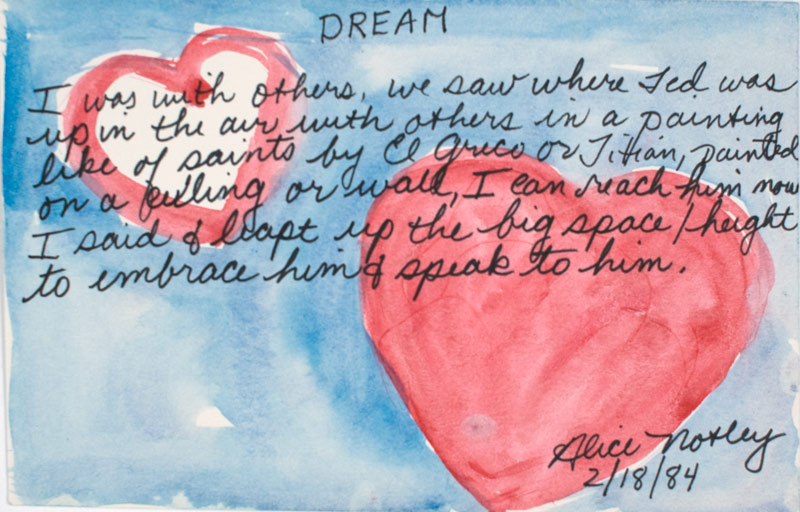 DREAM
I was with others, we saw where Ted was
up in the air with others in a painting
like of saints by El Greco or Titian, painted
on a ceiling or wall, I can reach him now
I said & leapt up the big space/height
to embrace him & speak to him.
Alice Notley
2/18/84